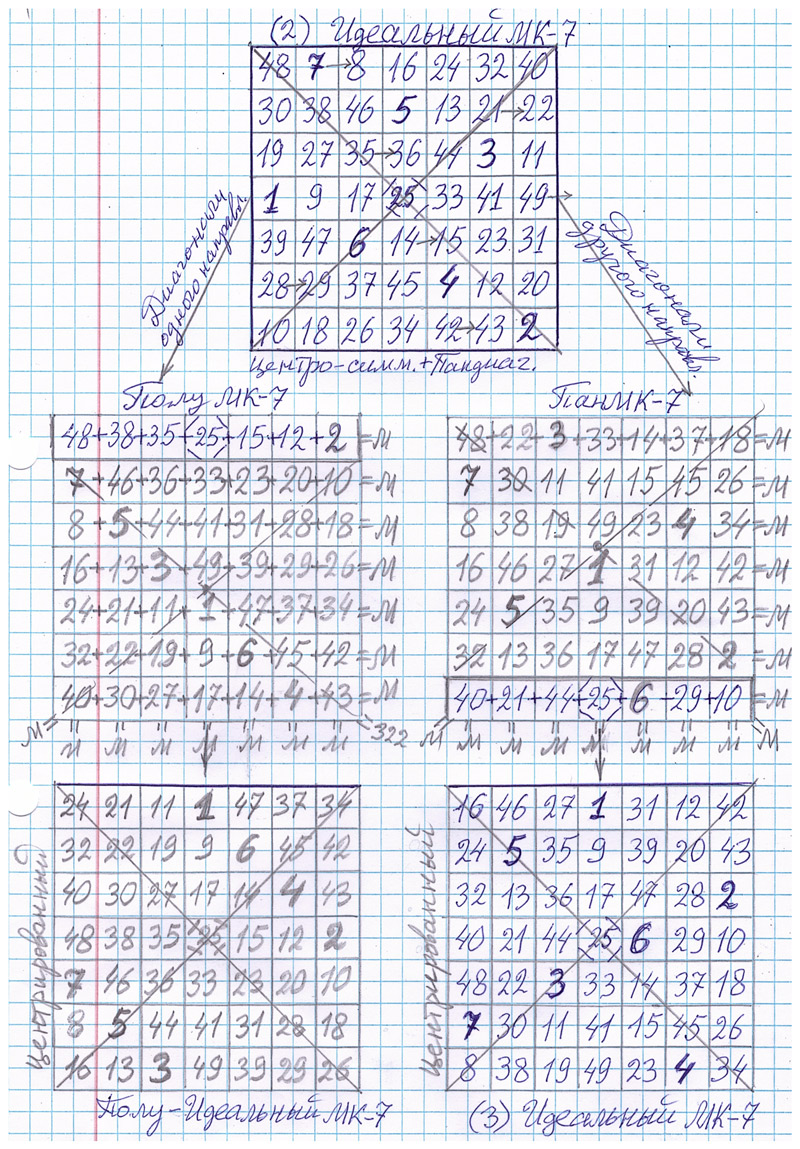 (2) Идеальный МК-7
48 7→8 16 24 32 40
30 38 46 5 13 21→22
19 27 35→36 44 3 11
1 9 17 25 33 41 49→
39 47 6 14→15 23 31
28→29 37 45 4 12 20
10 18 26 34 42→43 2
Диагонали
одного направл.
Диагонали
другого направл.
Центро-симм.+Пандиаг.
Полу МК-7
48+38+35+25+15+12+2=М
7+46+36+33+23+20+10=М
8+5+44+41+31+28+18=М
16+13+3+49+39+29+26=М
24+21+11+1+47+37+34=М
32+22+19+9+6+45+42=М
40+30+27+17+14+4+43=М
М= М М М М М М М =322
ПанМК-7
48+22+3+33+14+37+18=М
7 30 11 41 15 45 26=М
8 38 19 49 23 4 34=М
16 46 27 1 31 12 42=М
24 5 35 9 39 20 43=М
32 13 36 17 47 28 2=М
40+21+44+25+6+29+10=М
М М М М М М М М М
Центрированный
24 21 11 1 47 37 34
32 22 19 9 6 45 42
40 30 27 17 14 4 43
48 38 35 25 15 12 2
7 46 36 33 23 20 10
8 5 44 41 31 28 18
16 13 3 49 39 29 26
Полу-Идеальный МК-7
Центрированный
16 46 27 1 31 12 42
24 5 35 9 39 20 43
32 13 36 17 47 28 2
40 21 44 25 6 29 10
48 22 3 33 14 37 18
7 30 11 41 15 45 26
8 38 19 49 23 4 34
(3) Идеальный МК-7